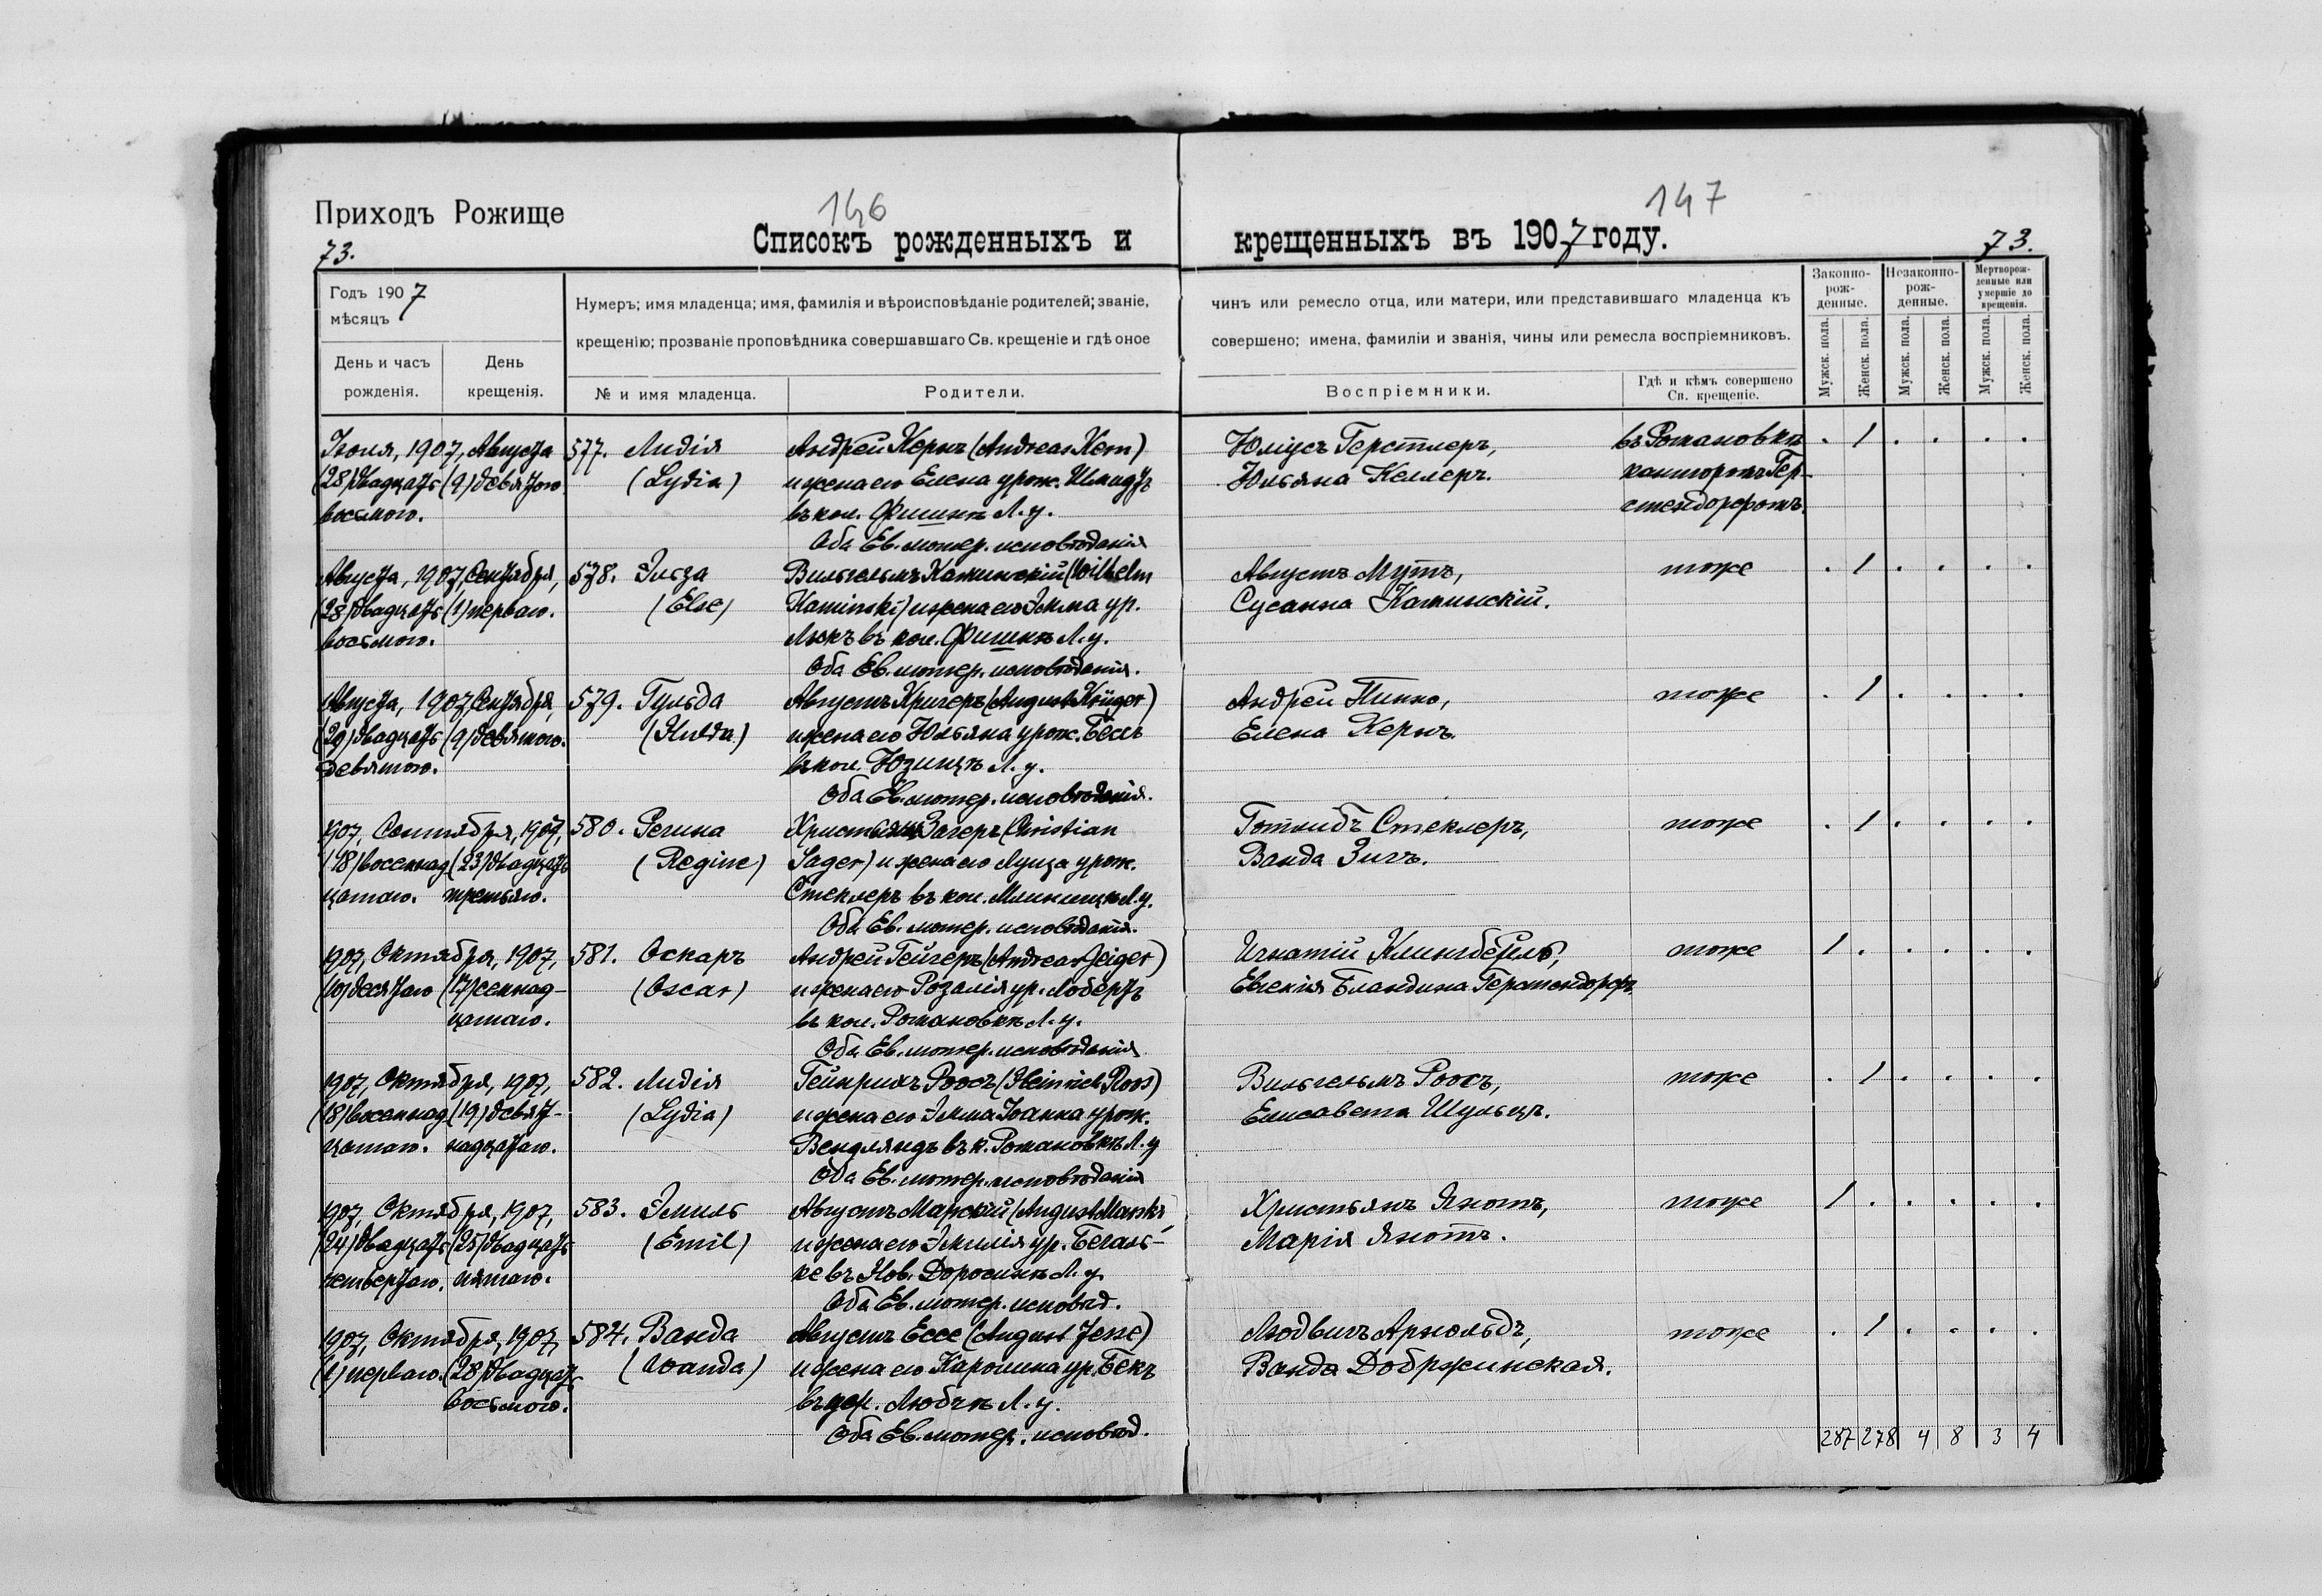 146
147
Приходъ Рожище
73.
Списокъ рожденныхъ и крещенныхъ въ 1907 году.
73.
Годъ 1907
мѣсяцъ
День и часъ
рожденія.
День
крещенія.
Нумеръ; имя младенца; имя, фамилія и вѣроисповѣданіе родителей; званіе,
крещенію; прозваніе проповѣдника совершавшаго Св. крещеніе и гдѣ оное
№ и имя младенца.
Родители.
чинъ или ремесло отца, или матери, или представившаго младенца къ
совершено; имена, фамиліи и званія, чины или ремесла воспріемниковъ.
Воспріемники.
Гдѣ и кѣмъ совершено
Св. крещеніе.
Законно-
рож-
денные.
Незаконно-
рож-
денные.
Мертворож-
денные или
умершіе до
крещенія.
Мужск. пола.
Женск. пола.
Мужск. пола.
Женск. пола.
Мужск. пола.
Женск. пола.
Іюля, 1907, Августа 577. Лидія Андрей Кернъ (Andreas Kern) Юліусъ Герстлеръ, въ Романовкѣ . 1 . . . .
(28) двадцать (9) девятаго (Lydia) и жена его Елена урож. Шмидтъ Юльяна Келлеръ. канторомъ Гер-
восьмого. въ кол. Фишкѣ Л. у. стендорфомъ.
Оба Ев. лютер. исповѣданія
Августа, 1907, Сентября, 578. Эльза Вильгельмъ Каминскій (Wilhelm Августъ Мутъ, тоже . 1 . . . .
(28) двадцать (1) перваго. (Else) Kaminski) и жена его Эмма ур. Сусанна Каминскій.
восьмого. Люкъ въ кол. Фишкѣ Л. у.
Оба Ев. лютер. исповѣданія.
Августа, 1907, Сентября, 579. Гульда Августъ Кригеръ (August Krüger) Андрей Пинно, тоже . 1 . . . .
(29) двадцать (9) девятого. (Hulda) и жена его Юльяна урож. Бессъ Елена Кернъ.
девятого. въ кол. Юзицѣ Л. у.
Оба Ев. лютер. исповѣданія.
1907, Сентября, 1907, 580. Регина Христьянъ Загеръ (Christian Готлибъ Стеклеръ, тоже . 1 . . . .
(18) восемнад (23) двадцать (Regine) Sager) и жена его Луиза урож. Ванда Зигъ.
цатаго. третьяго. Стеклеръ въ кол. Млиницкѣ Л. у.
Оба Ев. лютер. исповѣданія.
1907, Октября, 1907, 581. Оскаръ Андрей Гейгеръ (Andreas Geiger) Игнатій Клингбейль, тоже 1 . . . . .
(10) десятаго (17) семнад- (Oscar) и жена его Розалія ур. Лобертъ Евгенія Бландина Герстендорфъ.
цатаго. въ кол. Романовкѣ Л. у.
Оба Ев. лютер. исповѣданія
1907, Октября, 1907, 582. Лидія Гейнрихъ Роосъ (Heinrich Roos) Вильгельмъ Роосъ, тоже . 1 . . . .
(18) восемнад (19) девят- (Lydia) и жена его Эмма Іоанна урож. Елисавета Шульцъ.
цатаго. надцатаго. Вендляндъ въ к. Романовкѣ Л. у
Оба Ев. лютер. исповѣданія
1907, Октября, 1907, 583. Эмиль Августъ Манскій (August Manski) Христьянъ Янотъ, тоже 1 . . . . .
(24) двадцать (25) двадцать (Emil) и жена его Эмилія ур. Бегань- Марія Янотъ.
четвертаго. пятаго. ке въ Нов. Доросинѣ Л. у.
Оба Ев. лютер. исповѣд.
1907, Октября, 1907, 584. Ванда Августъ Ессе (August Jesse) Людвигъ Арнольдъ, тоже . 1 . . . .
(1) перваго. (28) двадцать (Wanda) и жена его Каролина ур. Бекъ Ванда Добржинская.
восьмого. въ дер. Любчѣ Л. у.
Оба Ев. лютер. исповѣд.
287 278 4 8 3 4